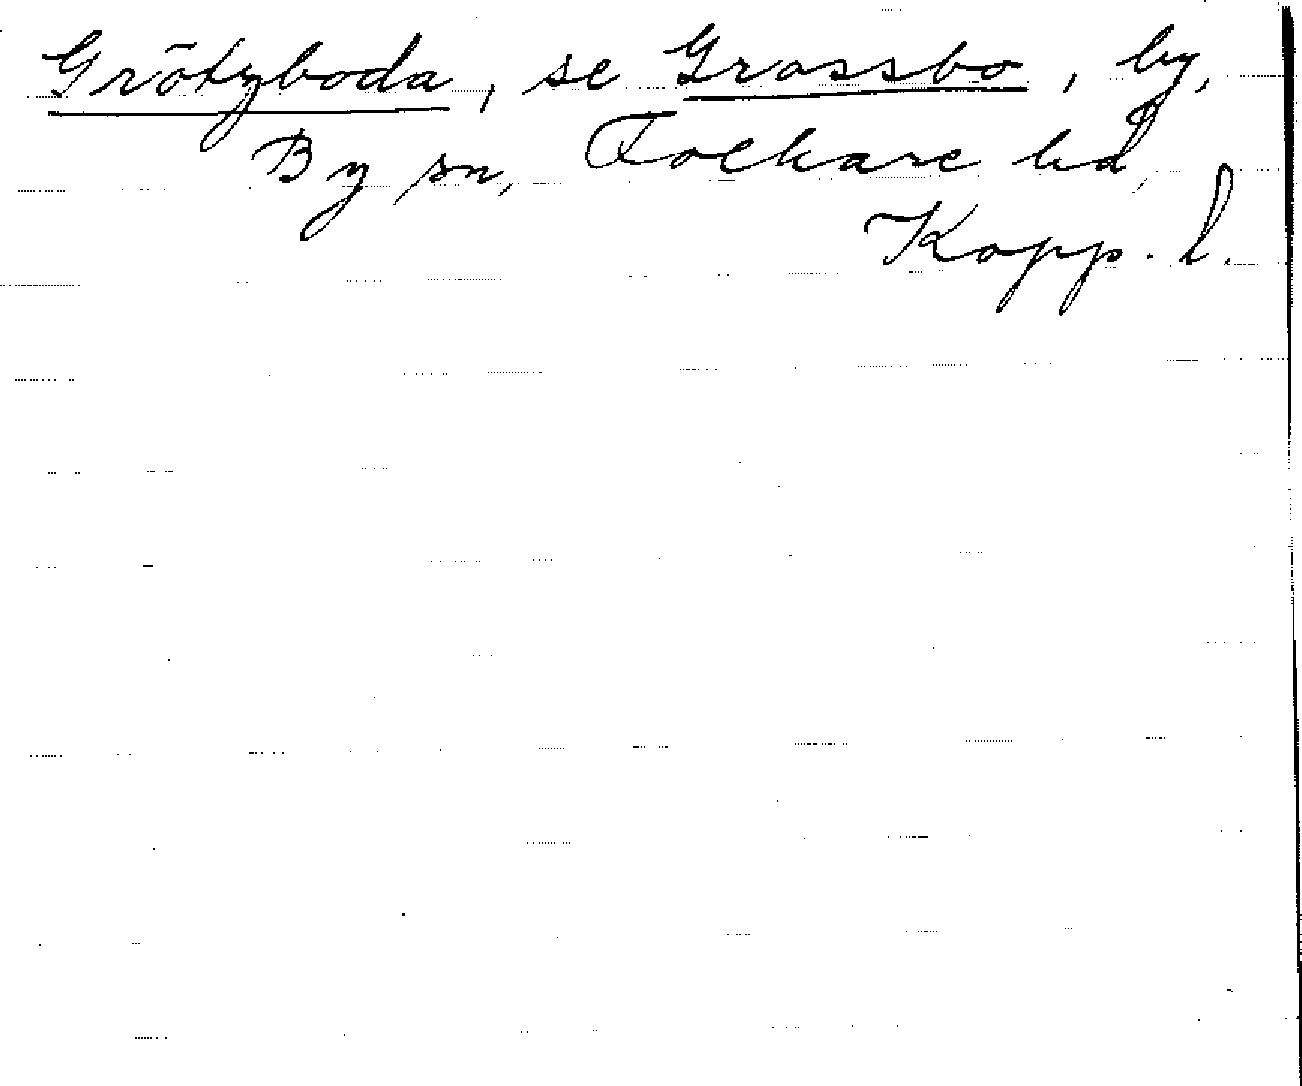 Grötzboda, se Grassbo, by,
By sn, Folkare hd,
Kopp. l.